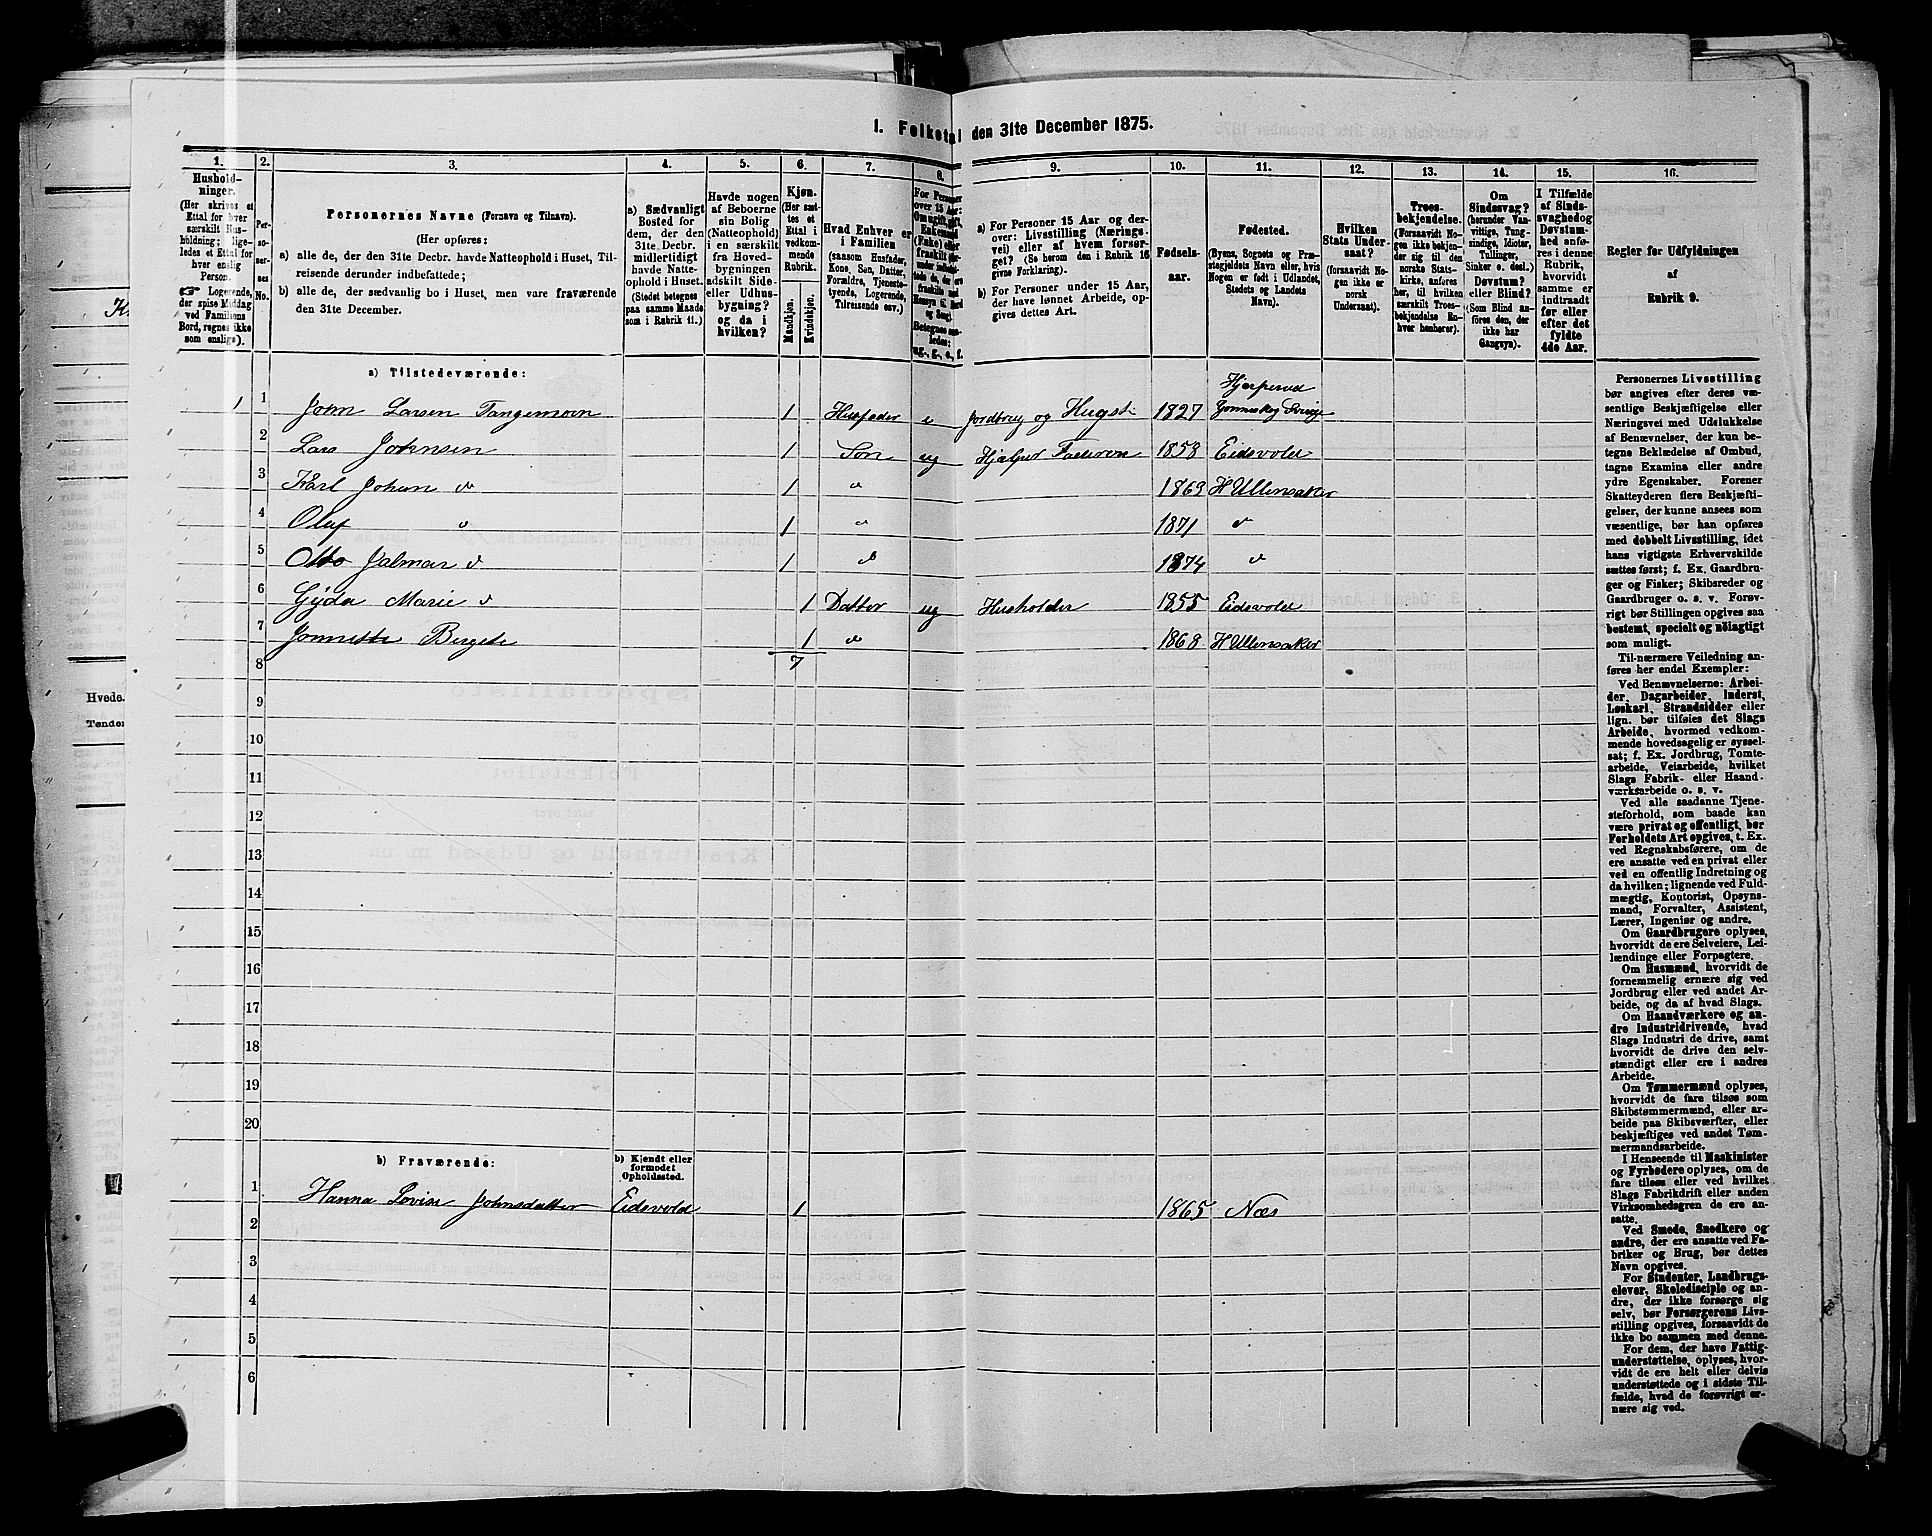 1. Folketal den 31te December 1875.
1.
Hushold-
ninger.
(Her skrives et
Ettal for hver
særskilt Hus-
holdning; lige-
ledes et Ettal
for hver enslig
Person.
☞ Logerende,
der spise Middag
ved Familiens
Bord, regnes ikke
som enslige).
2.
Per-
so-
ner-
nes
No.
3.
Personernes Navne (Fornavn og Tilnavn).
(Her opføres:
a) alle de, der den 31te Decbr. havde Natteophold i Huset, Til-
reisende derunder indbefattede;
b) alle de, der sædvanlig bo i Huset, men vare fraværende
den 31te December.
4.
a) Sædvanligt
Bosted for
dem, der den
31te Decbr.
midlertidigt
havde Natte-
ophold i Huset.
(Stedet betegnes
paa samme Maade
som i Rubrik 11.)
5.
Havde nogen
af Beboerne
sin Bolig
(Natteophold)
i en særskilt
fra Hoved-
bygningen
adskilt Side-
eller Udhus-
bygning?
og da i
hvilken?
6.
Kjøn.
(Her sæt-
tes et
Ettal i
vedkom-
mende
Rubrik.
Mandkjøn.
Kvindekjøn.
7.
Hvad Enhver er
i Familien
(saasom Husfader,
Kone, Søn, Datter,
Forældre, Tjeneste-
tyende, Logerende,
Tilreisende osv.)
8.
For Personer
over 15 Aar:
Betegnes saa-
ledes:
ug., g., e., f.
9.
a) For Personer 15 Aar og der-
over: Livsstilling (Nærings-
vei) eller af hvem forsør-
get? (Se herom den i Rubrik 16
givne Forklaring).
b) For Personer under 15 Aar,
der have lønnet Arbeide, op-
gives dettes Art.
10.
Fødsels-
aar.
11.
Fødested.
(Byens, Sognets og Præste-
gjeldets Navn eller, hvis
Nogen er født i Udlandet,
Stedets og Landets
Navn).
12.
Hvilken
Stats Under-
saat?
(forsaavidt No-
gen ikke er
norsk
Undersaat).
13.
Troes-
bekjendelse.
(Forsaavidt No-
gen ikke bekjen-
der sig til den
norske Stats-
kirke, anføres
her, til hvilken
særskilt Troes-
bekjendelse En-
hver henhører).
14.
Om
Sindssvag?
(herunder Van-
vittige, Tung-
sindige, Idioter,
Tullinger,
Sinker o. desl.)
Døvstum?
eller Blind?
(Som Blind an-
føres den, der
ikke har
Gangsyn).
15.
I Tilfælde
af Sinds-
svaghed og
Døvstum-
hed anfø-
res i denne
Rubrik,
hvorvidt
samme er
indtraadt
før eller
efter det
fyldte
4de Aar.
16.
Regler for Udfyldningen
af
Rubrik 9.
a) Tilstedeværende:
1 1 John Larsen Tangemoen 1 Husfader e Jordbrug og Hugst 1827
2 Lars Johnsen 1 Søn ug Hjælper Faderen 1853 Eidsvold
3 Karl Johan do 1 do 1869 H Ullensaker
4 Oluf do 1 do 1871 do
5 Otto Jalmar do 1 do 1874 do
6 Gyda Marie do 1 Datter ug Husholder 1855 Eidsvold
7 Bergete 1 do 1868 H Ullensaker
8 7
9
10
11
12
13
14
15
16
17
18
19
20
b) Fraværende:
b) Kjendt eller
formodet
Opholdssted.
1 Hanna Lovise Johnsdatter Eidsvold 1 1865 Næs
2
3
4
5
6
Personernes Livsstilling
bør angives efter deres væ-
sentlige Beskjæftigelse eller
Næringsvei med Udelukkelse
af Benævnelser, der kun be-
tegne Beklædelse af Ombud,
tagne Examina eller andre
ydre Egenskaber. Forener
Skatteyderen flere Beskjæfti-
gelser, der kunne ansees som
væsentlige, bør han opføres
med dobbelt Livsstilling, idet
hans vigtigste Erhvervskilde
sættes først; f. Ex. Gaardbru-
ger og Fisker; Skibsreder og
Gaardbruger o. s. v. Forøv-
rigt bør Stillingen opgives saa
bestemt, specielt og nøiagtigt
som muligt.
Til nærmere Veiledning an-
føres her endel Exempler:
Ved Benævnelserne: Arbei-
der, Dagarbeider, Inderst,
Løskarl, Strandsidder eller
lign. bør tilføies det Slags
Arbeide, hvormed vedkom-
mende hovedsagelig er syssel-
sat; f. Ex. Jordbrug, Tomte-
arbeide, Veiarbeide, hvilket
Slags Fabrik- eller Haand-
værksarbeide o. s. v.
Ved alle saadanne Tjene-
steforhold, som baade kan
være privat og offentligt, bør
Forholdets Art opgives, t. Ex.
ved Regnskabsførere, om de
ere ansatte ved en privat eller
ved en offentlig Indretning og
da hvilken; lignende ved Fuld-
mægtig, Kontorist, Opsyns-
mand, Forvalter, Assistent,
Lærer, Ingeniør og andre.
Om Gaardbrugere oplyses,
hvorvidt de ere Selveiere, Lei-
lændinge eller Forpagtere.
Om Husmænd, hvorvidt de
fornemmelig ernære sig ved
Jordbrug eller ved andet Ar-
beide, og da af hvad Slags.
Om Haandværkere og an-
dre Industridrivende, hvad
Slags Industri de drive, samt
hvorvidt de drive den selv-
stændigt eller ere i andres
Arbeide.
Om Tømmermænd oplyses,
hvorvidt de fare tilsøs som
Skibstømmermænd, eller ar-
beide paa Skibsværfter, eller
beskjæftiges ved andet Tøm-
mermandsarbeide.
I Henseende til Maskinister
og Fyrbødere oplyses, om de
fare tilsøs eller ved hvilket
Slags Fabrikdrift eller anden
Virksomhedsgren de ere an-
satte.
Ved Smede, Snedkere og
andre, der ere ansatte ved Fa-
briker og Brug, bør dettes
Navn opgives.
For Studenter, Landbrugs-
elever, Skoledisciple og an-
dre, der ikke forsørge sig
selv, bør Forsørgerens Livs-
stilling opgives, forsaavidt de
ikke bo sammen med denne.
For dem, der have Fattig-
understøttelse, oplyses, hvor-
vidt de ere helt eller delvis
understøttede og i sidste Til-
fælde, hvad de forøvrigt er-
nære sig ved.
Hvede.
Tønder